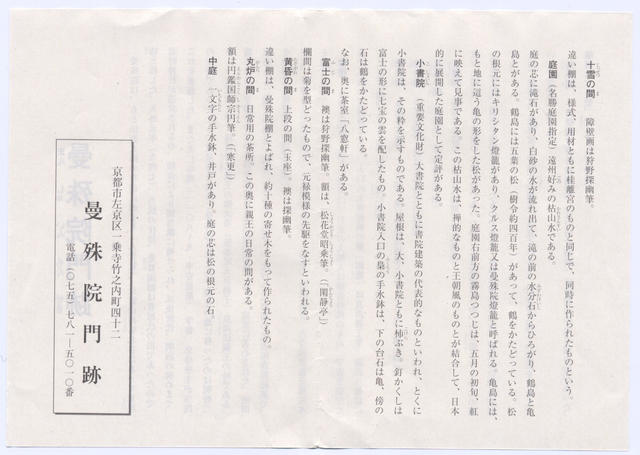 十雪の間　障壁画は狩野探幽筆。
違い棚は、様式、用材ともに桂離宮のものと同じで、同時に作られたものという。
庭園（名勝庭園指定）遠州好みの枯山水である。
庭の芯に滝石があり、白砂の水が流れ出て、滝の前の水分石からひろがり、鶴島と亀
島とがある。鶴島には五葉の松（樹令約四百年）があって、鶴をかたどっている。松
の根元にはキリシタン燈籠があり、クルス燈籠又は曼殊院燈籠と呼ばれる。亀島には、
もと地に這う亀の形をした松があった。庭園右前方の霧島つつじは、五月の初旬、紅
に映えて見事である。この枯山水は、禅的なものと王朝風のものとが結合して、日本
的に展開した庭園として定評がある。
小書院（重要文化財）大書院とともに書院建築の代表的なものといわれ、とくに
小書院は、その粋を示すものである。屋根は、大、小書院ともに杮ぶき。釘かくしは
富士の形に七宝の雲を配したもの。小書院入口の梟の手水鉢は、下の台石は亀、傍の
石は鶴をかたどっている。
なお、奥に茶室「八窓軒」がある。
富士の間　襖は狩野探幽筆。額は、松花堂昭乗筆。（「閑静亭」）
欄間は菊を型どったもので、元禄模様の先駆をなすといわれる。
黄昏の間　上段の間（玉座）。襖は探幽筆。
違い棚は、曼殊院棚とよばれ、約十種の寄せ木をもって作られたもの。
丸炉の間　日常用の茶所。この奥に親王の日常の間がある。
額は円鑑国師宗円筆。（「寒更」）
中庭　一文字の手水鉢、井戸があり。庭の芯は松の根元の石。
京都市左京区一乗寺竹之内町四十二
曼殊院門跡
電話（〇七五）七八一―五〇一〇番